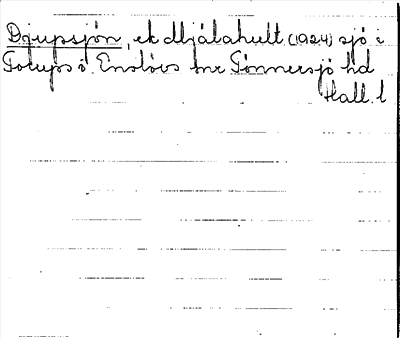 Djupsjön, ek Mjälahult (1924) sjö i
Torups o. Enslövs snr Tönnersjö hd
Hall. l